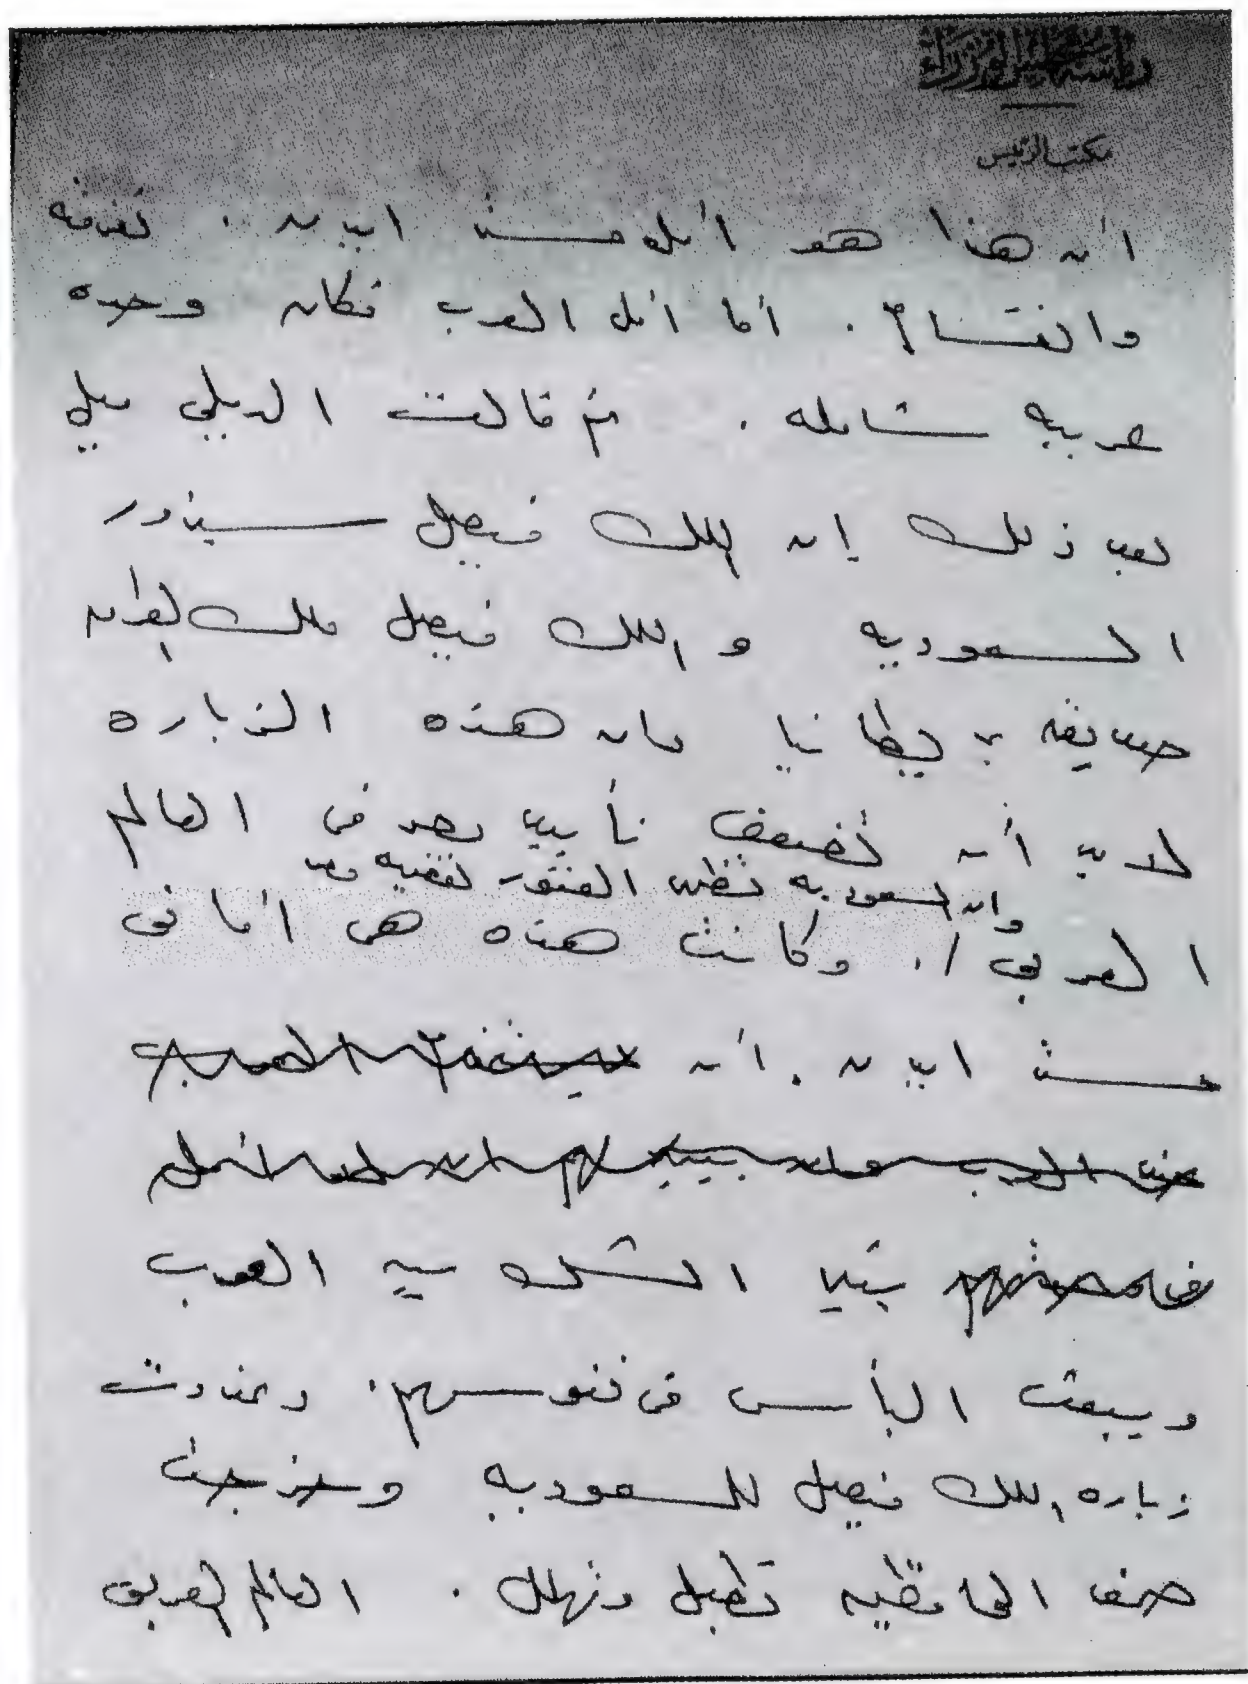 رئاسة مجلس الوزراء
مكتب الرئيس
أن هذا هو أمل مستر ايدن . تفرقه
وانقسام . أما أمل العرب فكان وحده
عربيه شامله . ثم قالت الديلى ميل
بعد ذلك إن الملك فيصل سيزور
السعوديه و الملك فيصل ملك العراق
صديقه بريطانيا وان هذه الزياره
لابد أن تضعف تأييد مصر فى العالم
وان السعوديه تظهر الفتور لقضيه مصر
العربى / . وكانت هذه هى أمانى
مستر ايدن . أن
يثير الشك بين العرب
ويبعث اليأس فى نفوسهم . وعادت
زياره الملك فيصل للسعوديه وخرجت
صحف المحافظين تطبل وتهلل . العالم العربى